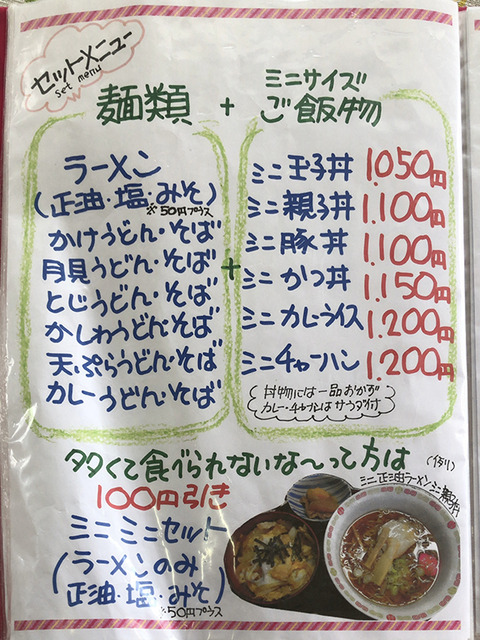 セットメニュー
set menu
麺類 + ミニサイズ
ご飯物
ラーメン
(正油・塩・みそ)
※50円プラス
かけうどん・そば
月見うどん・そば
とじうどん・そば
かしわうどん・そば
天ぷらうどん・そば
カレーうどん・そば
+
ミニ玉子丼 1.050円
ミニ親子丼 1.100円
ミニ豚丼 1.100円
ミニかつ丼 1.150円
ミニカレーライス 1.200円
ミニチャーハン 1.200円
丼物には一品おかず
カレー・チャーハンはサラダ付
多くて食べられないな〜って方は
100円引き
ミニミニセット
(ラーメンのみ
正油・塩・みそ)
※50円プラス
(例)
ミニ正油ラーメンミニ親子丼